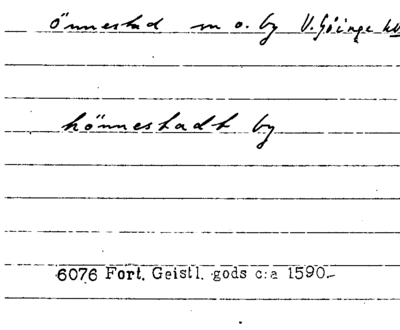 Önnestad m o. by V. Göinge hd
hönnestadt by
6076 Fort. Geistl. gods c:a 1590.